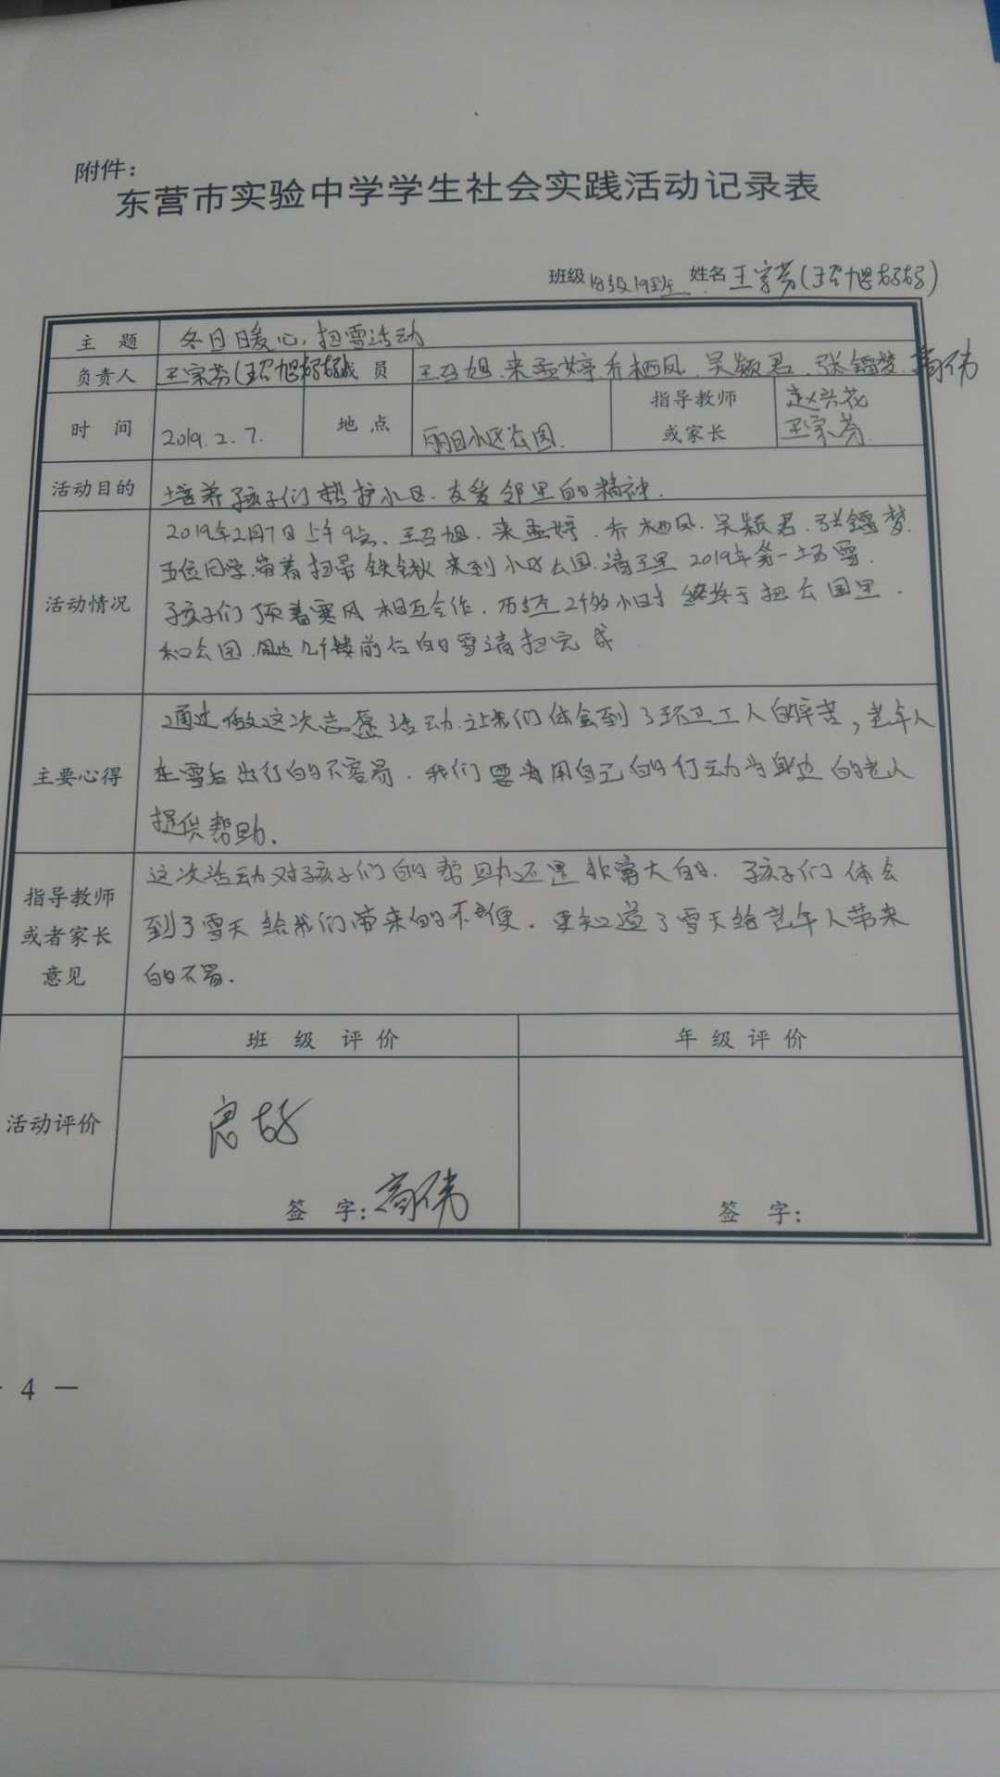 附件：
东营市实验中学学生社会实践活动记录表
班级 18级19班 姓名 王宗芳(王召旭妈妈)
主 题 冬日暖心，扫雪活动
负责人 王宗芳(王召旭妈妈) 成员 王召旭 来孟婷 乔栖凤 吴颖君 张鑫梦 高伟
时 间 2019.2.7. 地 点 丽日小区公园. 指导教师或家长 赵兴花 王宗芳
活动目的 培养孩子们 小区.友爱邻里的精神.
活动情况 2019年2月7日上午9点、王召旭.来孟婷.乔栖凤.吴颖君.张鑫梦.
五位同学.带着扫帚铁锹来到小区公园.清理 2019年第一场雪.
孩子们顶着寒风相互合作.历经2个多小时终于把公园里.
和公园周边几个楼前后的雪清扫完成
主要心得 通过做这次志愿活动.让我们体会到了环卫工人的辛苦，老年人
在雪后出行的不容易.我们要 用自己的行动为身边的老人
提供帮助.
指导教师或者家长意见 这次活动对孩子们的帮助还是非常大的.孩子们体会
到了雪天给我们带来的不便.更知道了雪天给老年人带来
的不易.
活动评价 班 级 评 价 年 级 评 价
良好
签 字：高伟 签 字：
4 —